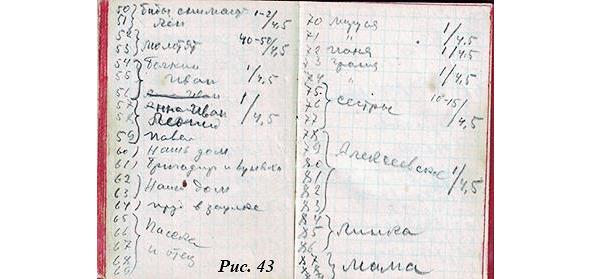 50) бабы снимают 1-2/4,5
51) лён
52)
53) молотят 40-50/4,5
54)
55) Иван 1/4,5
56)
57) Анна Иван 1/4,5
58) Леонид
59) Павел
60) Нашъ дом
61) бригадир и
62)
63) Нашъ дом
64) пруд в
65)
66) Пасека
67 и отец
68
69)
70 Маруся 1/4,5
71 "
72 Паня 1/4,5
73 Граня
74 " 1/4,5
75
76 сестры 10-15/4,5
77
78
79
80 Алексеевская 1/4,5
81
82
83
84
85 Линка
86
87 мама
88
Рис. 43